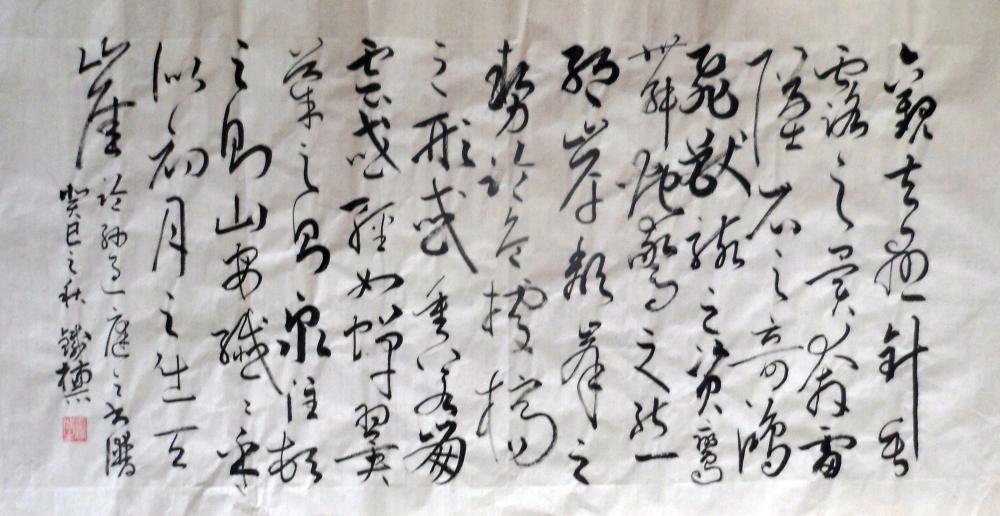 觀夫懸針垂
露之異奔雷
墜石之奇鴻
飛獸駭之資鸞
舞蛇驚之態
絕岸頹峯之
勢臨危據槁
之形或重若崩
雲或輕如蟬翼
導之則泉注頓
之則山安纖纖乎
似初月之出天
崖
臨孫過庭之書譜
癸巳之秋 鐵